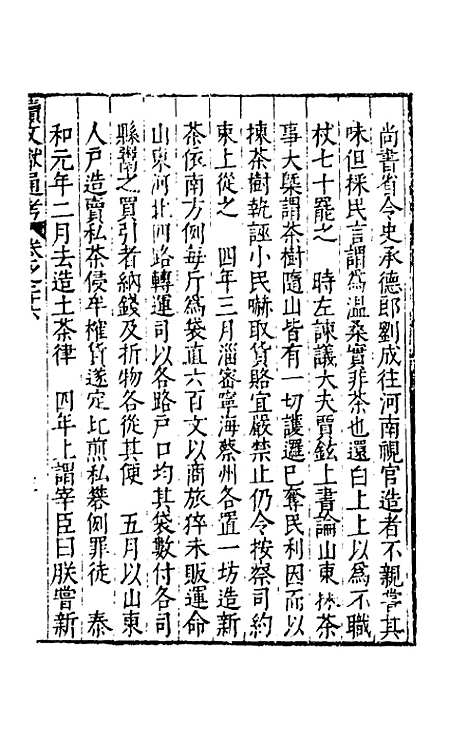 尚書省令史承德郎劉成往河南視官造者不親嘗其
味但採民言謂為温桑實非茶也還白上上以為不職
杖七十罷之　時左諫議大夫賈鉉上書論山東採茶
事大槩謂茶樹隨山皆有一切護邏已奪民利因而以
揀茶樹執誣小民嚇取貨賂宜嚴禁止仍令按察司約
束上從之　四年三月淄密寧海蔡州各置一坊造新
茶依南方例每斤為袋直六百文以商旅猝未販運命
山東河北四路轉運司以各路戶口均其袋數付各司
縣鬻之買引者納錢及折物各從其便　五月以山東
人戶造賣私茶侵牟榷貨遂定比煎私礬例罪徒　泰
和元年二月去造土茶律　四年上謂宰臣曰朕嘗新
續文獻通考　卷之二十六